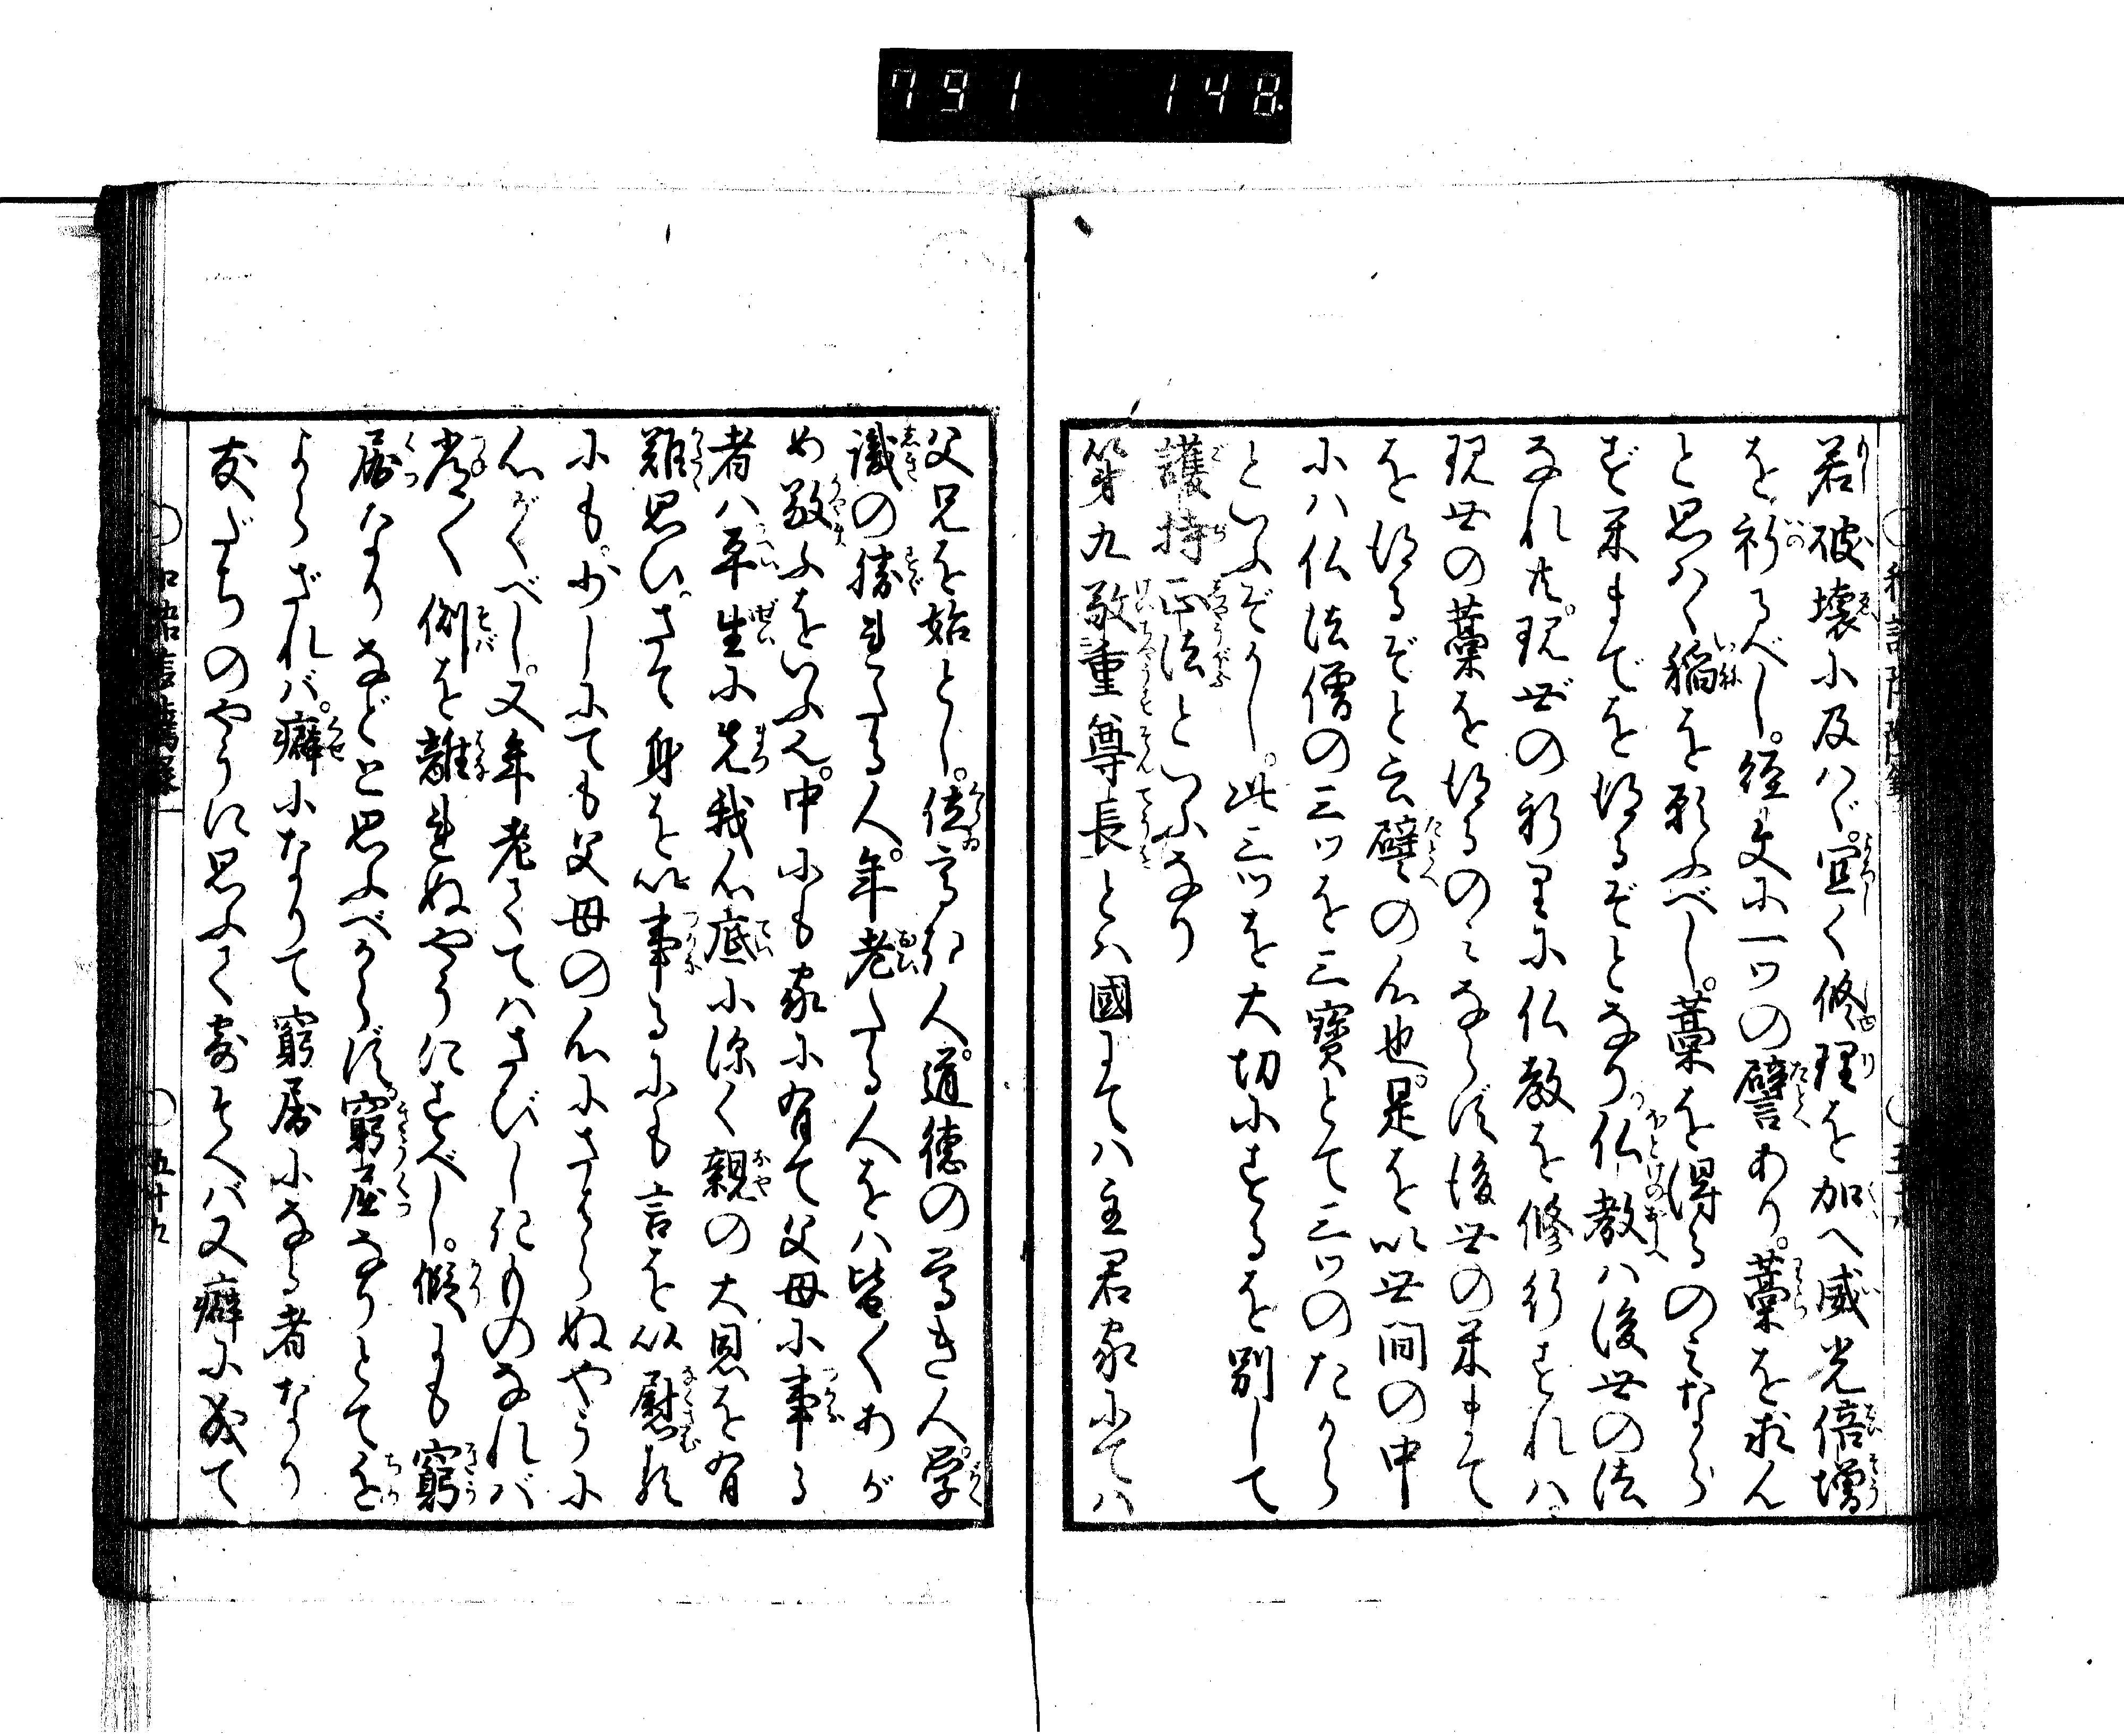 791 148
若破壊に及バヾ。宜く修理を加へ威光倍増
を祈るべし。経文に一ツの譬あり。藁を求ん
と思ハく稲を願ふべし。藁を得るのミならず
米までを得るぞとなり。仏教ハ後世の法
なれ共。現世の祈里に仏教を修行すれハ
現世の藁を得るのミならず後世の米まて
を得るぞと云譬の心也。是を以世间の中
にハ仏法僧の三ツを三寳とて三ツのたから
といふぞかし。此三ツを大切にするを別して
護持正法といふなり
第九敬重尊長とハ國にてハ主君家にてハ
父兄を始とし。位高き人。道徳の尊き人。学
識の勝れたる人。年老たる人をハ皆〱あが
め敬ふをいふ。中にも家に有て父母に事る
者ハ平生に先我心底に深く親の大恩を有
難思ひ。さて身を以事るにも言を以慰る
にも。少しにても父母の心にさからぬやうに
心がくべし。又年老てハさびしきものなれバ
常〱側を離れぬやうにすべし。假にも窮
屈なりなどと思ふべからず。窮屈なりとてを
よらざれバ。癖になりて窮屈になる者なり
友だちのやうに思ふて寄そへバ又癖に成て
五十九